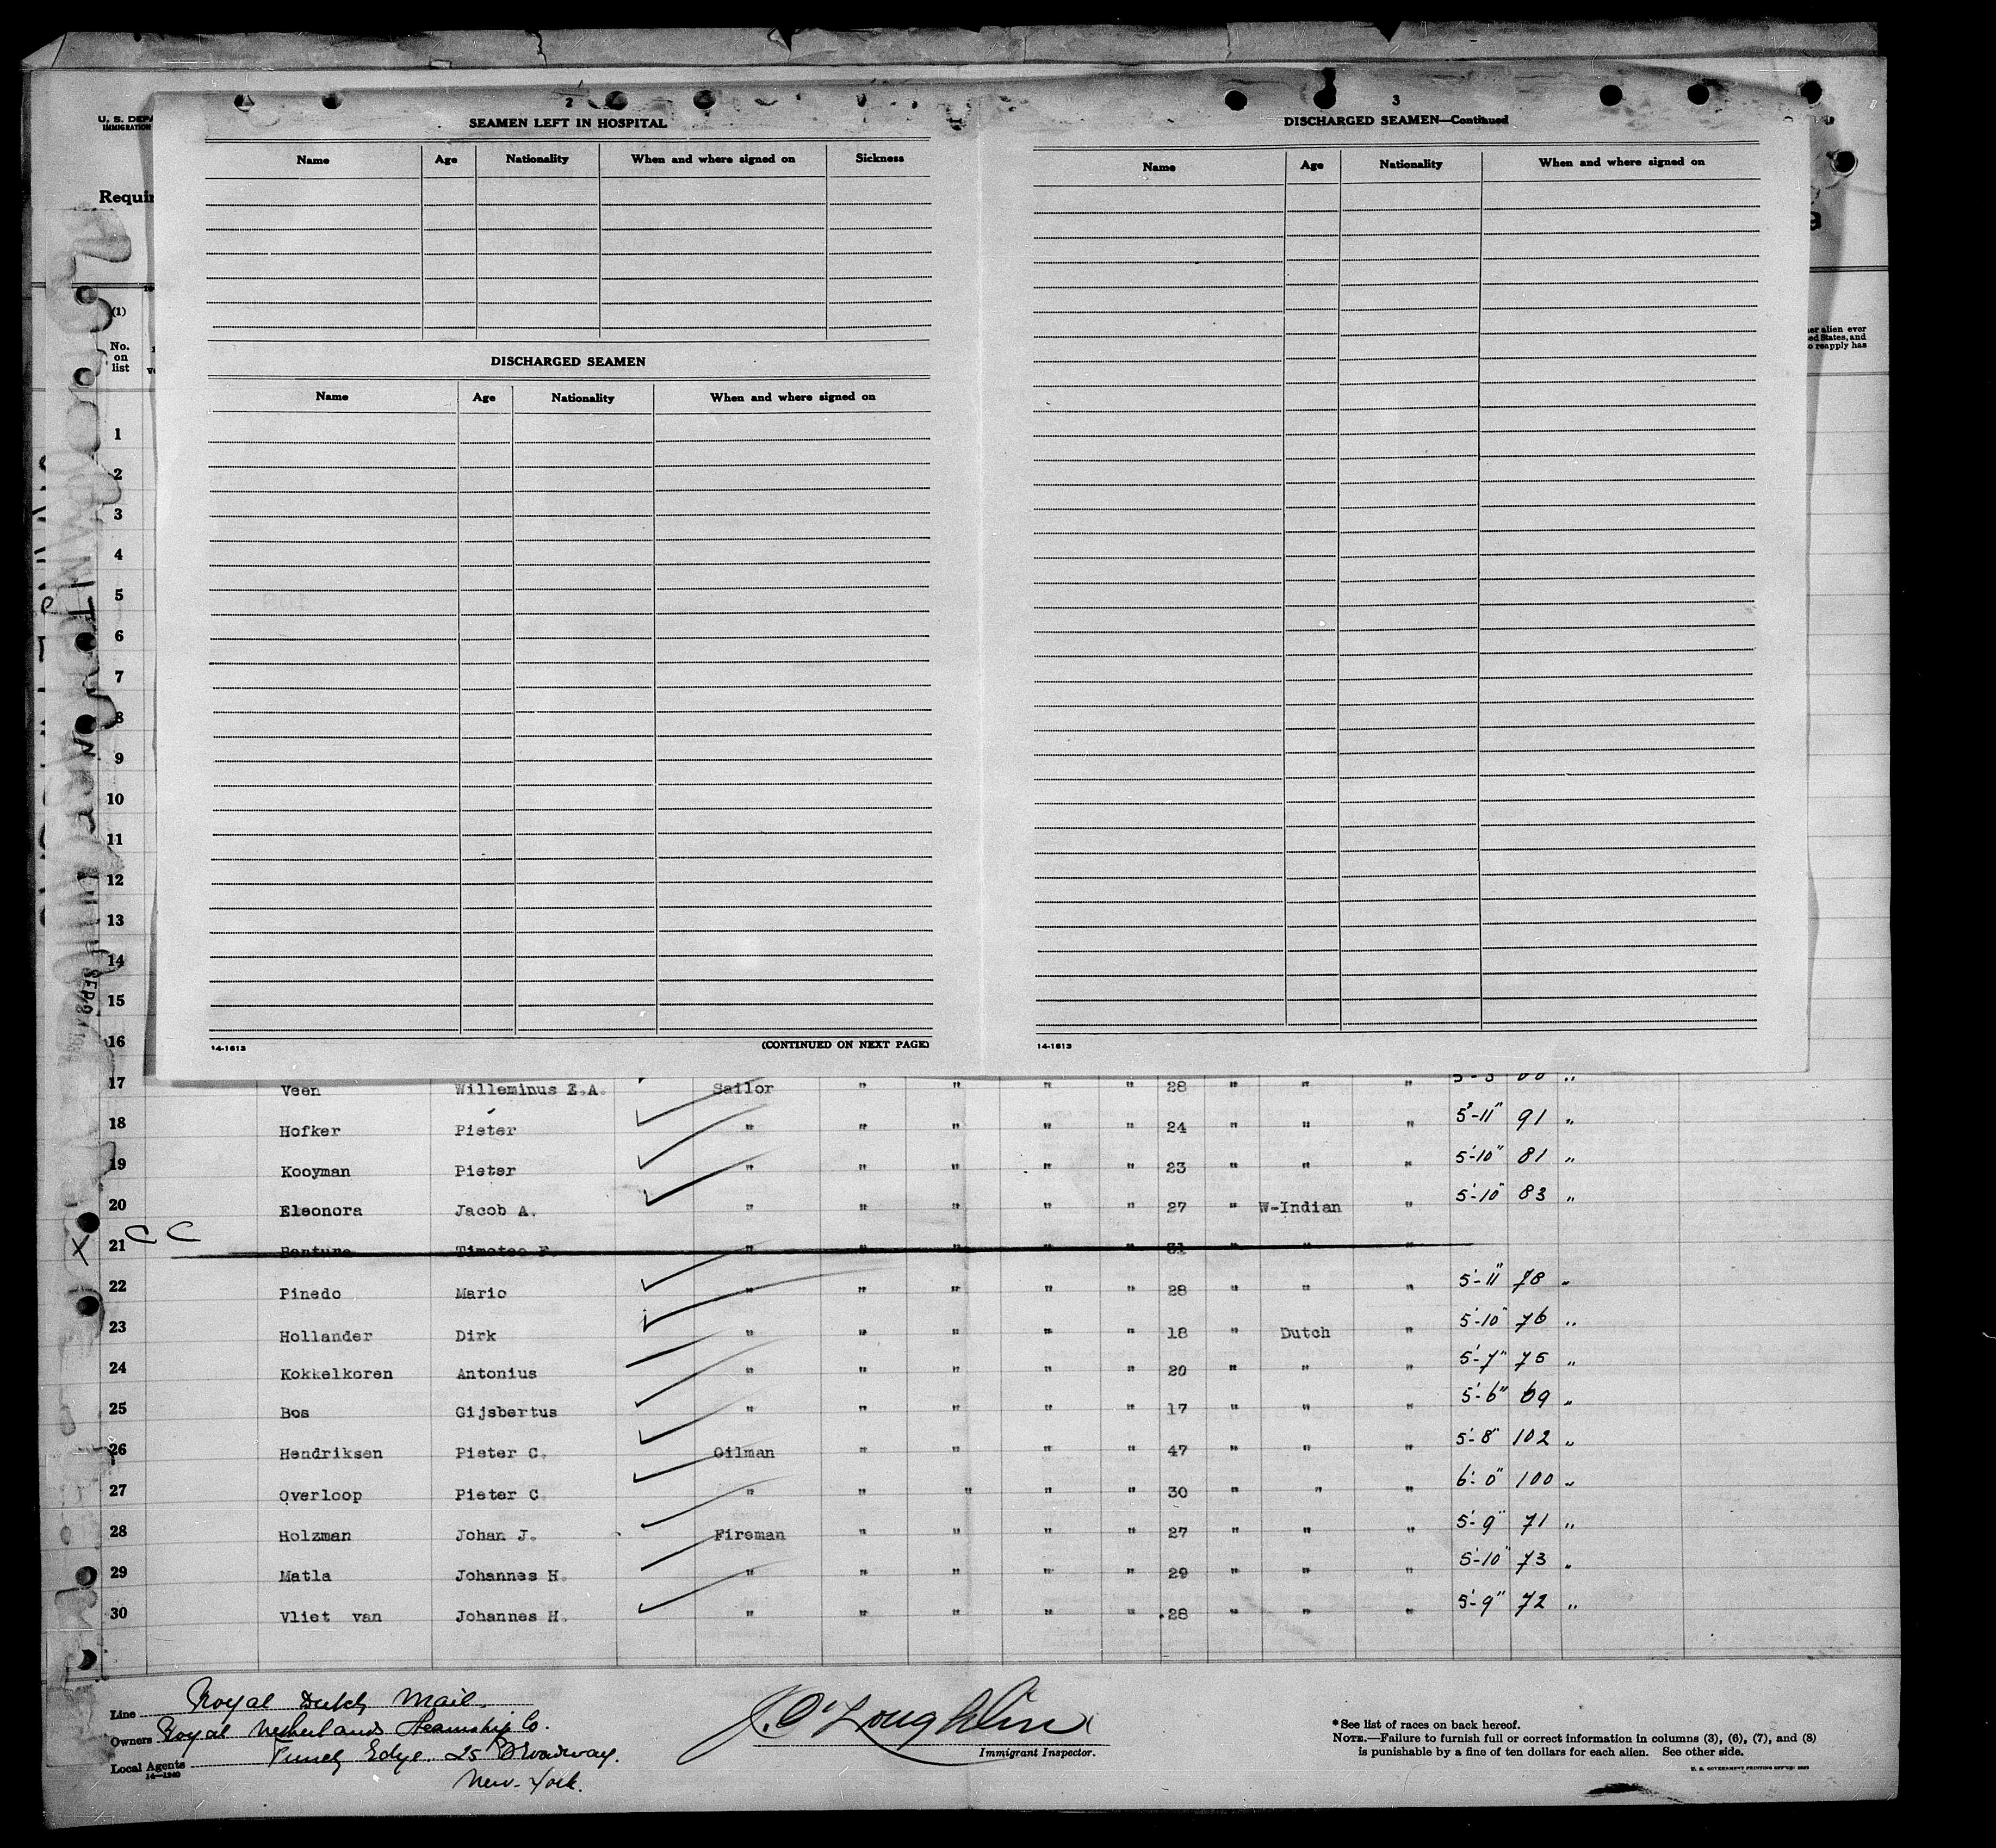 U. S. DEPA
IMMIGRATION
Requir
2
SEAMEN LEFT IN HOSPITAL
Name Age Nationality When and where signed on Sickness
DISCHARGED SEAMEN
Name Age Nationality When and where signed on
14-1613 (CONTINUED ON NEXT PAGE)
3
DISCHARGED SEAMEN—Continued
Name Age Nationality When and where signed on
14-1613
9
her alien ever
ed States, and
o reapply has
(1)
No.
on
list
1
2
3
4
5
6
7
8
9
10
11
12
13
14
15
16
17 Veen Willeminus E.A. Sailor " " " " 28 " " "
18 Hofker Pieter " " " " " 24 " " " 5'-11" 91 "
19 Kooyman Pieter " " " " " 23 " " " 5'-10" 81 "
20 Eleonora Jacob A. " " " " " 27 " W-Indian " 5'-10" 83 "
C C
X 21 Timoteo F. " " " " " 31 " " "
22 Pinedo Mario " " " " " 28 " " " 5'-11" 78 "
23 Hollander Dirk " " " " " 18 " Dutch " 5'-10" 76 "
24 Kokkelkoren Antonius " " " " " 20 " " " 5'-7" 75 "
25 Bos Gijsbertus " " " " " 17 " " " 5'-6" 69 "
26 Hendriksen Pieter C. Oilman " " " " 47 " " " 5'-8" 102 "
27 Overloop Pieter C. " " " " " 30 " " " 6'-0" 100 "
28 Holzman Johan J. Fireman " " " " 27 " " " 5'-9" 71 "
29 Matla Johannes H. " " " " " 29 " " " 5'-10" 73 "
30 Vliet van Johannes H. " " " " " 28 " " " 5'-9" 72 "
Line Royal Dutch Mail.
Owners Royal Netherlands Steamship Co.
Local Agents Funch Edye. 25 Broadway.
14—1240
New-York.
J. O'Loughlin
Immigrant Inspector.
*See list of races on back hereof.
NOTE.—Failure to furnish full or correct information in columns (3), (6), (7), and (8)
is punishable by a fine of ten dollars for each alien. See other side.
U. S. GOVERNMENT PRINTING OFFICE